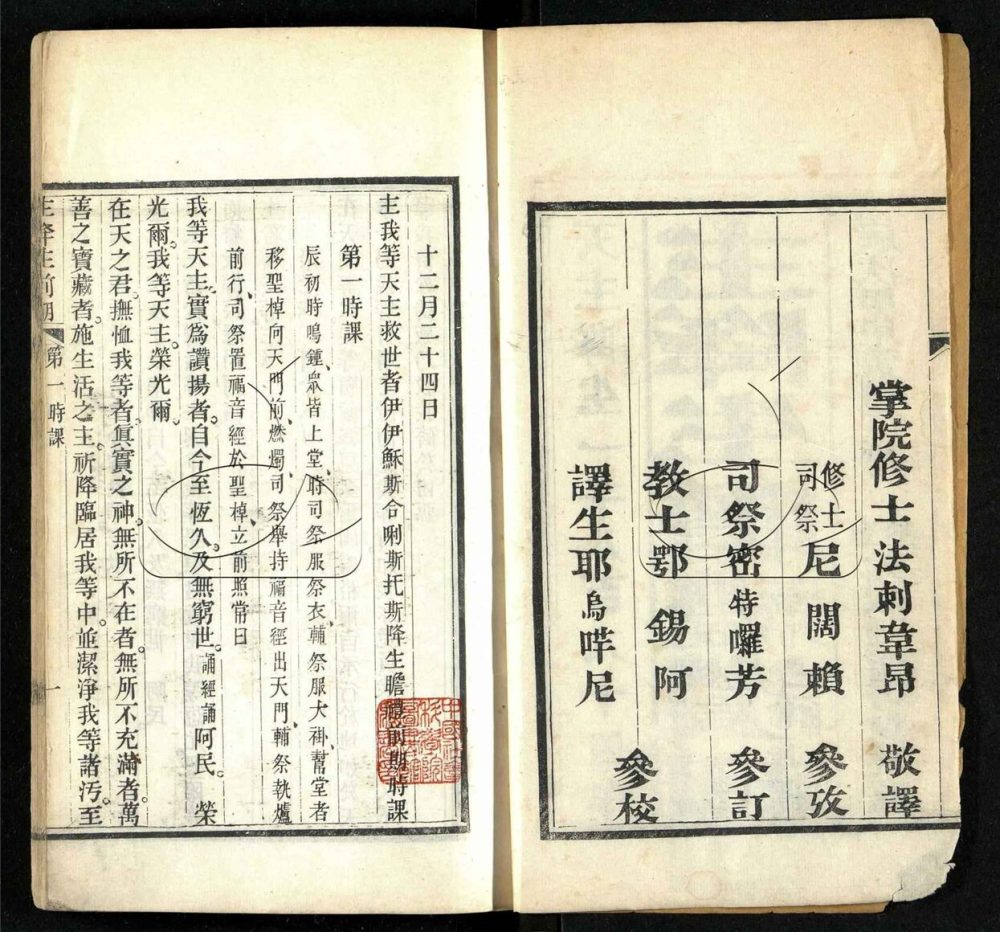 掌院修士法剌韋昂 敬譯
修士司祭尼闊賴 參攷
司祭密特囉芳 參訂
教士鄂錫阿
譯生耶烏哶尼 參校
十二月二十四日
主我等天主救世者伊伊穌斯合唎斯托斯降生瞻禮前期時課
第一時課
辰初時鳴鍾、衆皆上堂、時司祭服祭衣、輔祭服大褂、幫堂者
移聖棹向天門前、燃燭、司祭舉持福音經出天門、輔祭執爐
前行、司祭置福音經於聖棹、立前照常曰
我等天主、實爲讚揚者、自今至恆久、及無窮世。誦經誦阿民。榮
光爾。我等天主。榮光爾。
在天之君。撫恤我等者。眞實之神。無所不在者。無所不充滿者。萬
善之寶藏者。施生活之主。祈降臨居我等中。並潔淨我等諸汚。至
主降生前期 第一時課 一